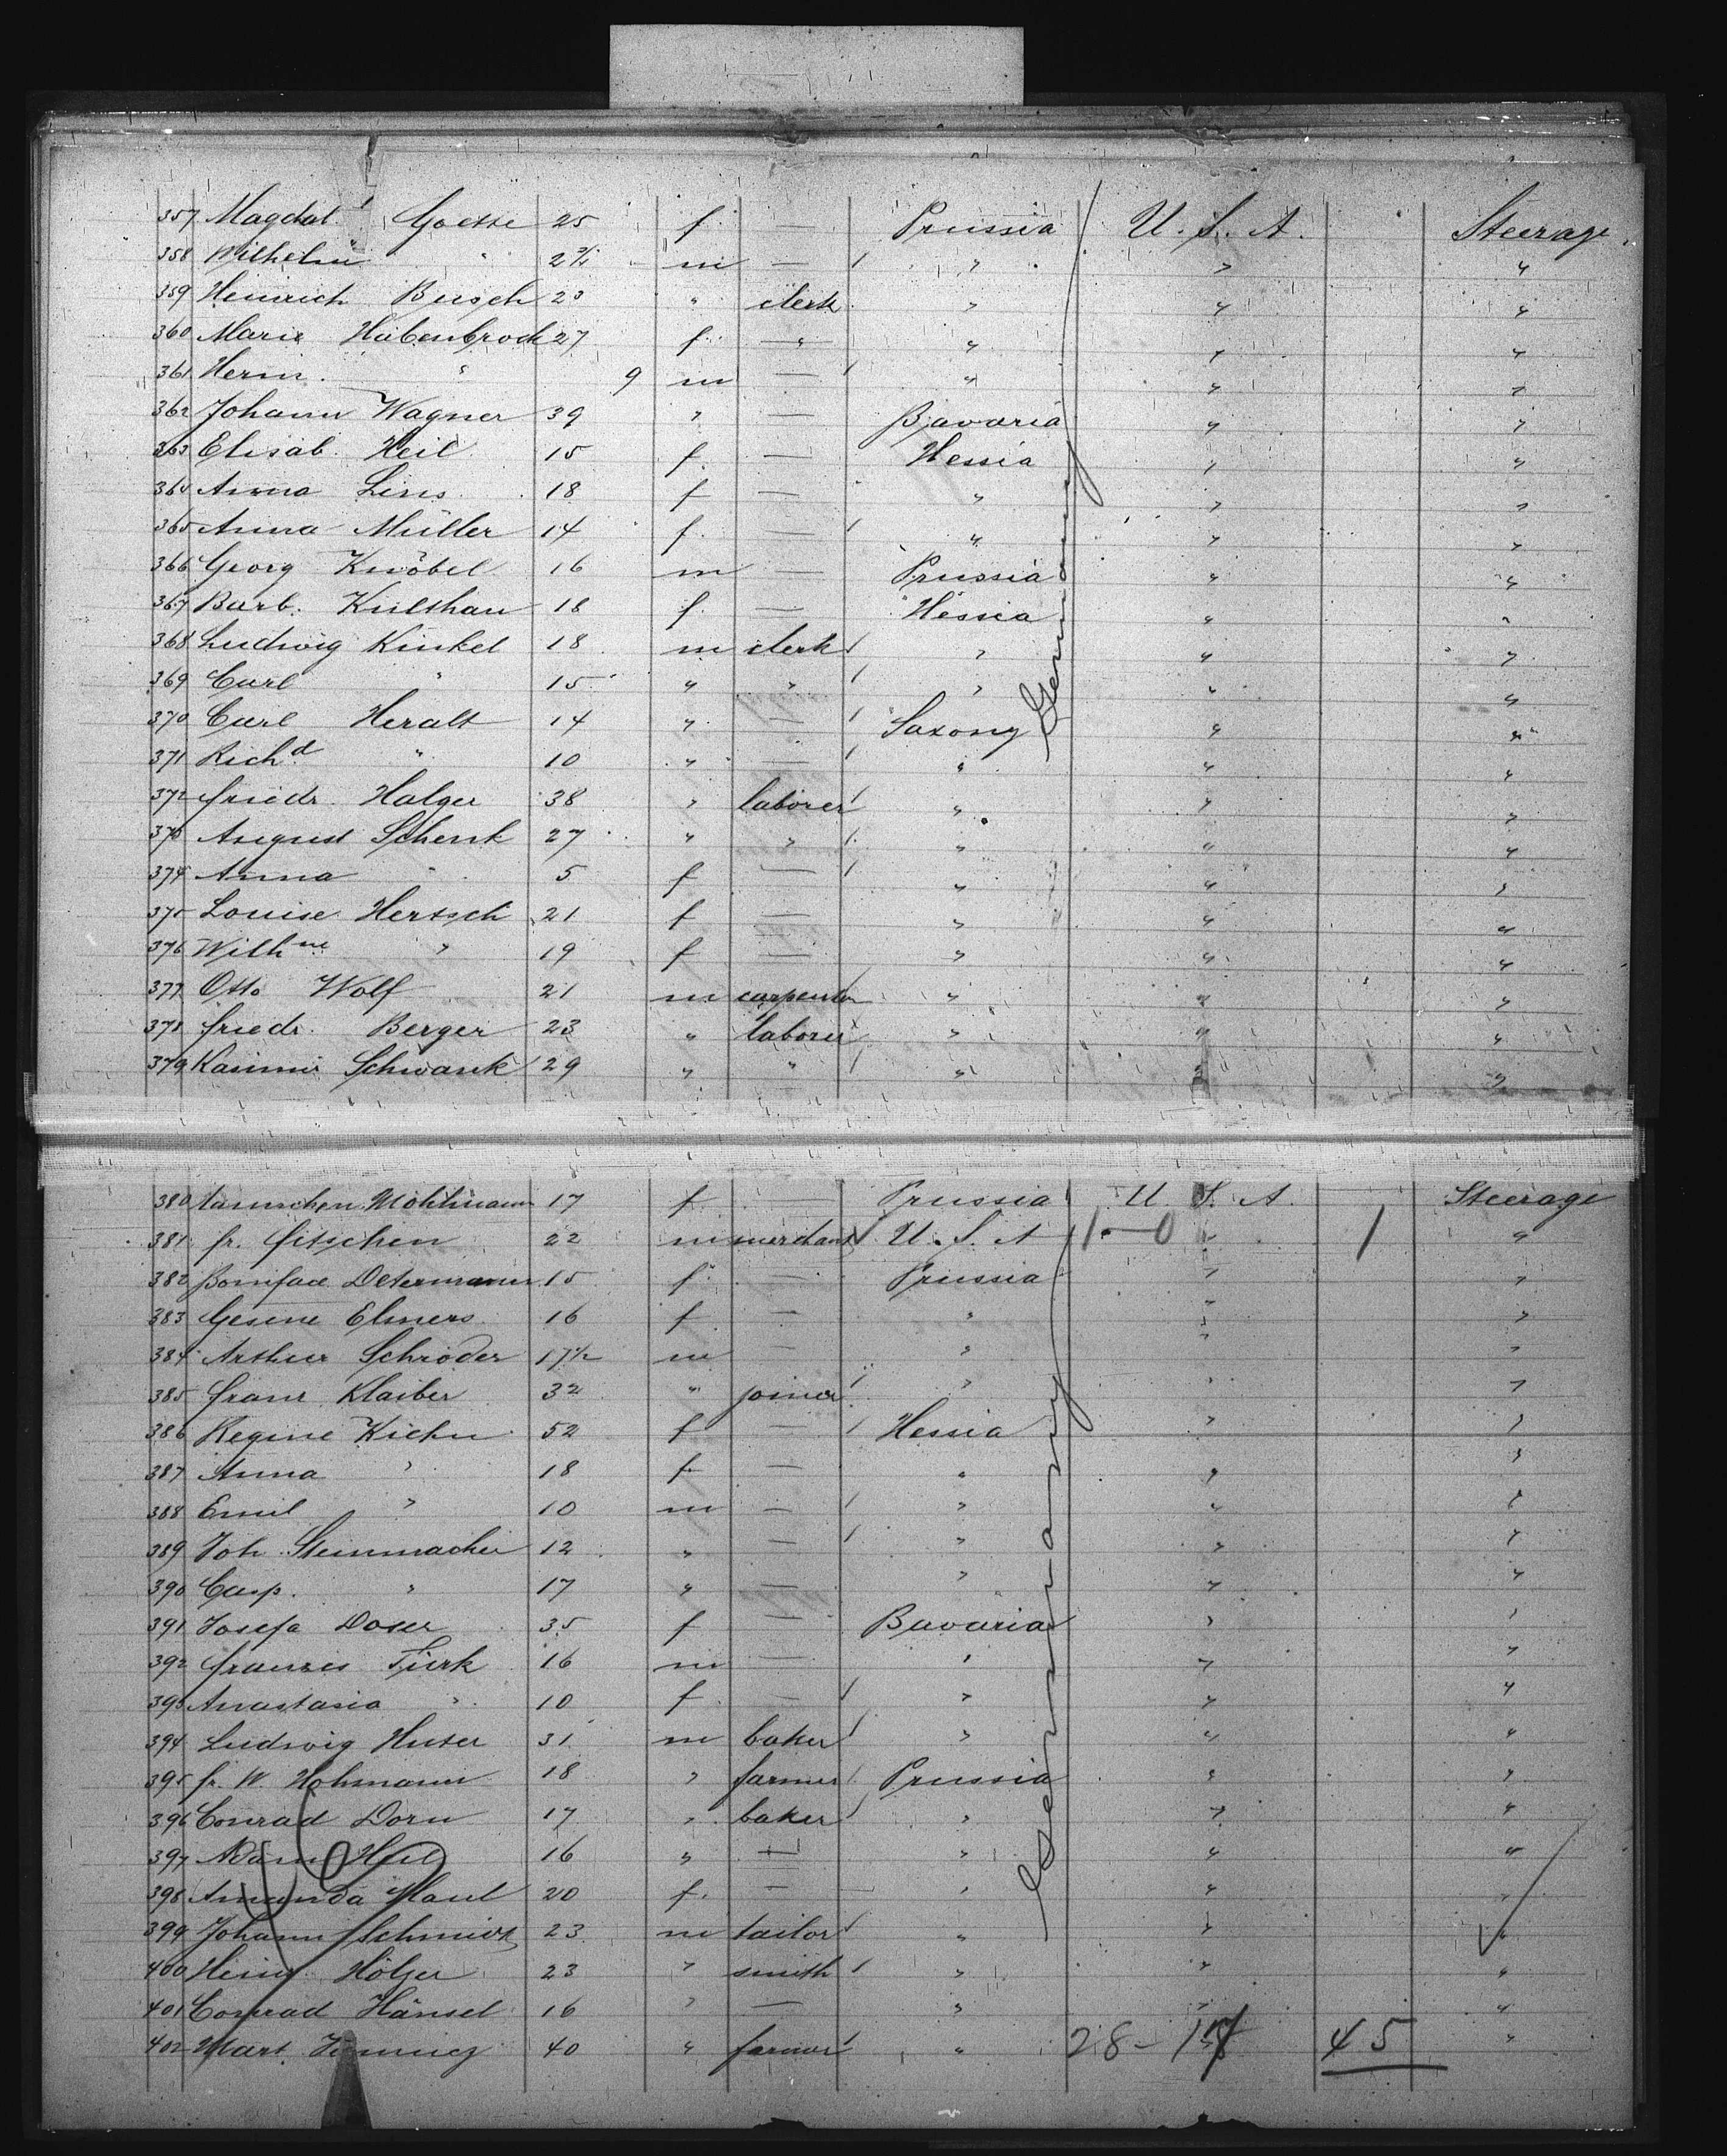 357 Magdal. Goette 25 f. — Prussia U. S. A. Steerage
358 Wilhelm " m — " " "
359 Heinrich Busch 23 " clerk " " "
360 Marie Habenbrock 27 f. " " " "
361 Herm. " 9 m — " " "
362 Johann Wagner 39 " — Bavaria " "
363 Elisab. Heil 15 f. — Hessia " "
364 Anna Lins 18 f — " " "
365 Anna Müller 14 f. — " " "
366 Georg Knöbel 16 m — Prussia " "
367 Barb. Kulthau 18 f. — Hessia " "
368 Ludwig Kinkel 18 m clerk " " "
369 Carl " 15 " " " " "
370 Carl Heralt 14 " — Saxony " "
371 Richd " 10 " — " " "
372 Friedr. Halger 38 " laborer " " "
373 August Schenk 27 " " " " "
374 Anna " 5 f — " " "
375 Louise Hertsch 21 f — " " "
376 Wilhne " 19 f — " " "
377 Otto Wolf 21 m carpenter " " "
378 Friedr. Berger 23 " laborer " " "
379 Kasimir Schwank 29 " " " " "
Germany
380 Mohlmann 17 f — Prussia U. S. A. Steerage
381 Fr. Fitschen 22 m merchant U. S. A 1-0 " 1 "
382 Boniface Determann 15 f. — Prussia " "
383 Gesine Elmers 16 f — " " "
384 Arthur Schröder 17½ m — " " "
385 Franz Klaiber 32 " joiner " " "
386 Regine Kiehn 52 f — Hessia " "
387 Anna " 18 f — " " "
388 Emil " 10 m — " " "
389 Joh. Steinmacher 12 " — " " "
390 Casp. " 17 " — " " "
391 Josefa Doser 35 f — Bavaria " "
392 Türk 16 m — " " "
393 Anastasia " 10 f — " " "
394 Ludwig Huter 31 m baker " " "
395 Fr. W. Hohmann 18 " farmer Prussia " "
396 Conrad Dorn 17 " baker " " "
397 Adam Heil 16 " — " " "
398 Amanda Maul 20 f. — " " "
399 Johann Schmidt 23 m tailor " " "
400 Heinr. Hölzer 23 " smith " " "
401 Conrad Hänsel 16 " — " " "
402 Mart. 40 " farmer " 28-17 45 "
Germany